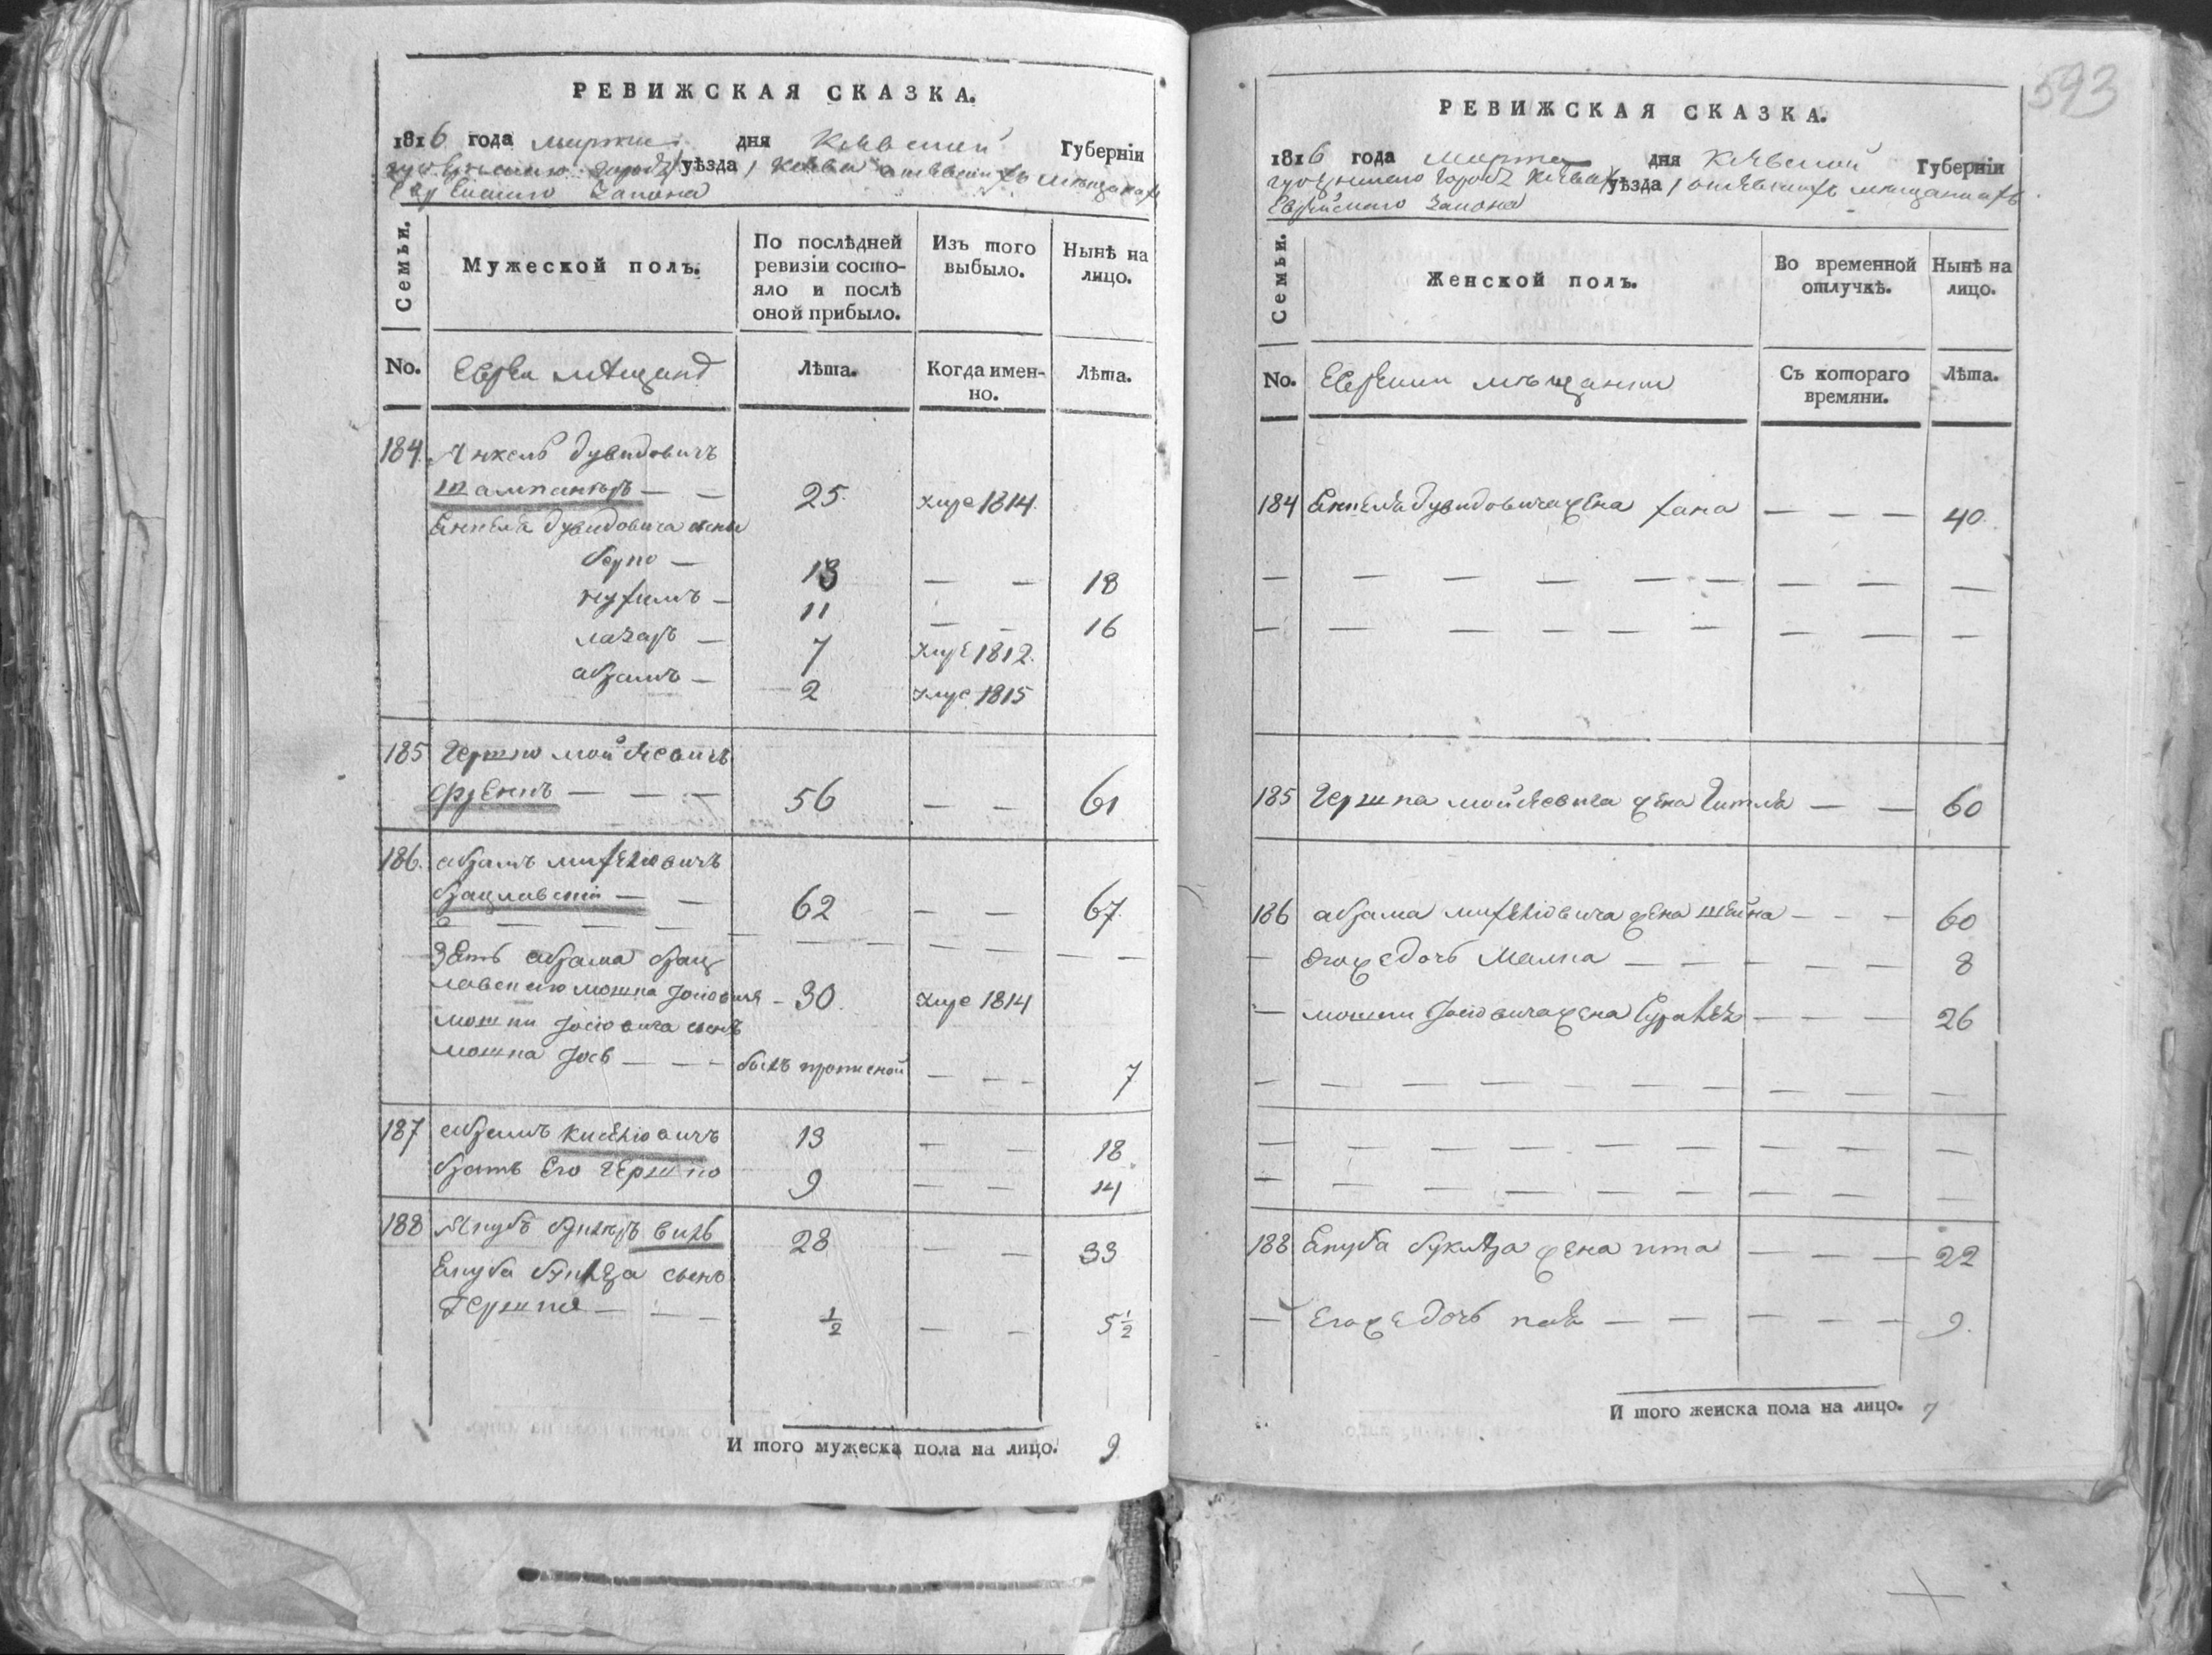 РЕВИЖСКАЯ СКАЗКА.
1816 года марта дня Киевской Губерніи
губернскаго города уѣзда Киева
Еврейскаго Закона
Семьи.
Мужеской полъ.
По послѣдней ревизіи состо-
яло и послѣ
оной прибыло.
Изъ того
выбыло.
Нынѣ на
лицо.
No. Евреи мѣщане Лѣта. Когда имен-
но. Лѣта.
184. Янкель Дувидовичъ
25. 1814.
Енкеля Дувидовича сыны
Берко — 13 — — 18
Нухимъ — 11 — — 16
Лазарь — 7 1812.
Абрамъ — 2 1815
185 Гершко Мойсеевичъ
Френкъ — — — 56 — — 61
186. Абрамъ Михелiовичъ
Брацлавскiй — — 62 — — 67.
Зять Абрама Брац
лавскаго Мошка Iосiовичъ — 30. 1814
Мошки Iосiовича сынъ
Мошка Iось — — — былъ прописной — — — 7
187 Абрамъ Кисѣлiовичъ 13 — — 18
братъ Его Гершко 9 — — 14
188 Якубъ 28 — — 33
Екуба сынъ
Гершка — — — ½ — — 5½
И того мужеска пола на лицо. 9.
593
РЕВИЖСКАЯ СКАЗКА.
1816 года марта дня Киевской Губерніи
губернскаго города Киева уѣзда мѣщанахъ
Еврейскаго Закона
Семьи.
Женской полъ.
Во временной
отлучкѣ.
Нынѣ на
лицо.
No. Еврейки мѣщанки Съ котораго
времяни. Лѣта.
184 Енкеля Дувидовича жена Хана — — — 40.
185 Гершка Мойсеевича жена Гитля — — 60
186 Абрама Михелiовича жена Шейна — — — 60
— Его же дочь Малка — — — — — 8
— Мошки Iосiовича жена — — — 26
188 Екуба жена — — — 22
— Его же дочь — — — — — 9.
И того женска пола на лицо. 7